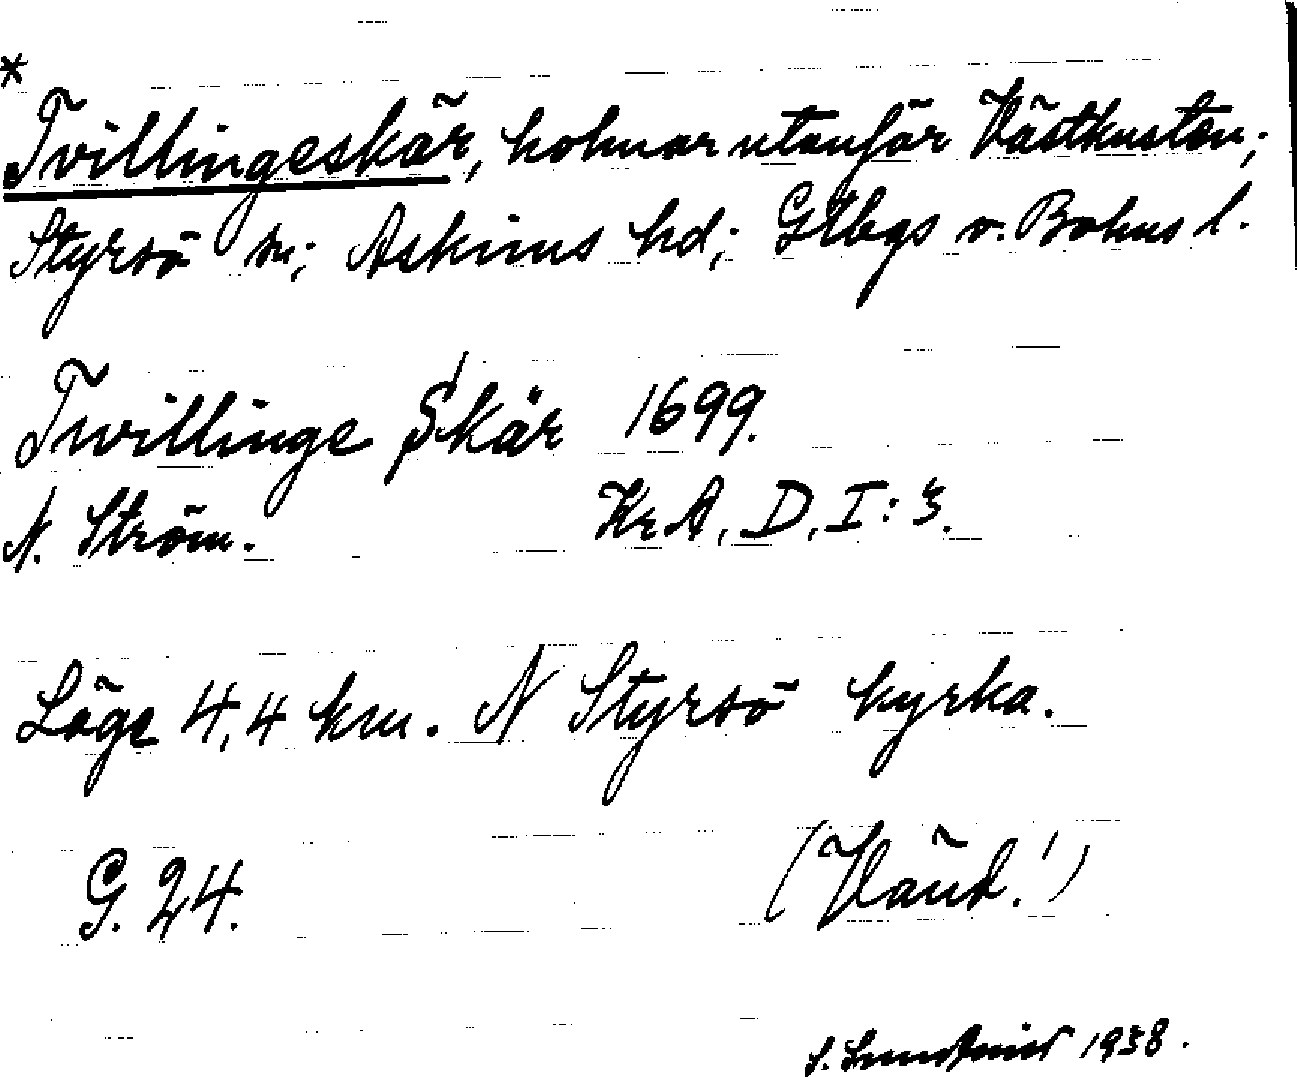 *
Tvillingeskär, holmar utanför Västkusten;
Styrsö sn; Askims hd; Gtbgs o. Bohus l.
Twillinge Skär 1699.
N. Ström. KrA, D, I: 3.
Läge 4,4 km. N Styrsö kyrka.
G. 24. (Vänd!)
S. 1938.